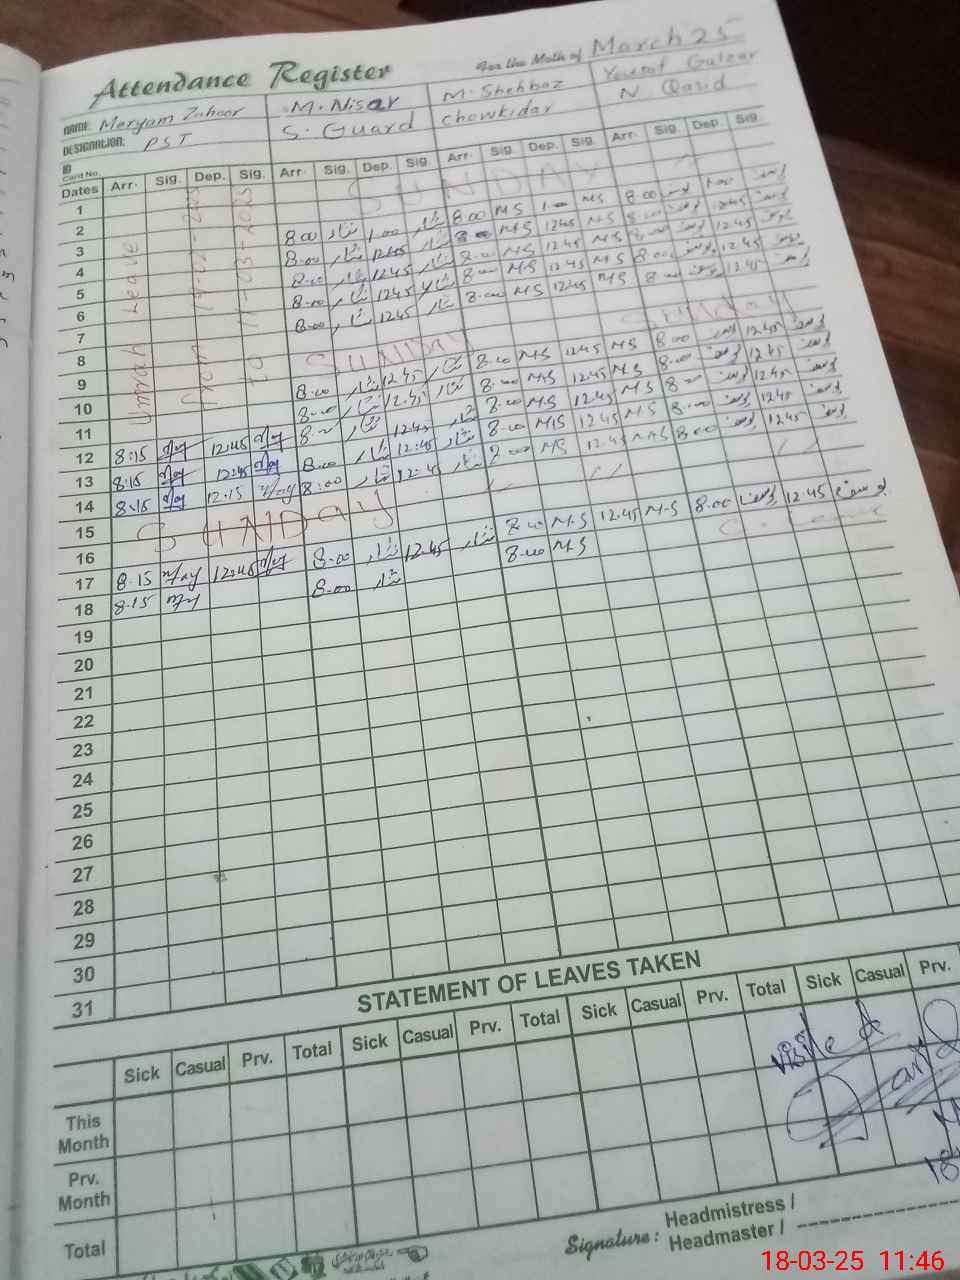 Attendance Register For the Moth of March 25
NAME: Maryam Zahoor M. Nisar M. Shehbaz Yousaf Gulzar
DESIGNATION: PST S. Guard Chowkidar N. Qasid
ID
Card No.
Dates Arr. Sig. Dep. Sig. Arr. Sig. Dep. Sig. Arr. Sig. Dep. Sig. Arr. Sig. Dep. Sig.
Umrah Leave
from
to 11-03-2025
1
2 SUNDAY
3 8:00 نثار 1:00 نثار 8:00 M-S 1:00 M-S 8:00 یوسف 1:00 یوسف
4 8:00 نثار 12:45 نثار 8:00 M-S 12:45 M-S 8:00 یوسف 12:45 یوسف
5 8:00 نثار 12:45 نثار 8:00 M-S 12:45 M-S 8:00 یوسف 12:45 یوسف
6 8:00 نثار 12:45 نثار 8:00 M-S 12:45 M-S 8:00 یوسف 12:45 یوسف
7 8:00 نثار 12:45 نثار 8:00 M-S 12:45 M-S 8:00 یوسف 12:45 یوسف
8
9 SUNDAY Sunday
10 8:00 نثار 12:45 نثار 8:00 M-S 12:45 M-S 8:00 یوسف 12:45 یوسف
11 8:00 نثار 12:45 نثار 8:00 M-S 12:45 M-S 8:00 یوسف 12:45 یوسف
12 8:15 12:45 8:00 نثار 12:45 نثار 8:00 M-S 12:45 M-S 8:00 یوسف 12:45 یوسف
13 8:15 12:45 8:00 نثار 12:45 نثار 8:00 M-S 12:45 M-S 8:00 یوسف 12:45 یوسف
14 8:15 12:15 8:00 نثار 12:45 نثار 8:00 M-S 12:45 M-S 8:00 یوسف 12:45 یوسف
15
16 SUNDAY
17 8:15 12:45 8:00 نثار 12:45 نثار 8:00 M-S 12:45 M-S 8:00 یوسف 12:45 یوسف
18 8:15 8:00 نثار 8:00 M-S C. Leave
19
20
21
22
23
24
25
26
27
28
29
30
31
STATEMENT OF LEAVES TAKEN
Sick Casual Prv. Total Sick Casual Prv. Total Sick Casual Prv. Total Sick Casual Prv.
This
Month
Prv.
Month
Total
Visited
Signature: Headmistress /
Headmaster /
18-03-25 11:46